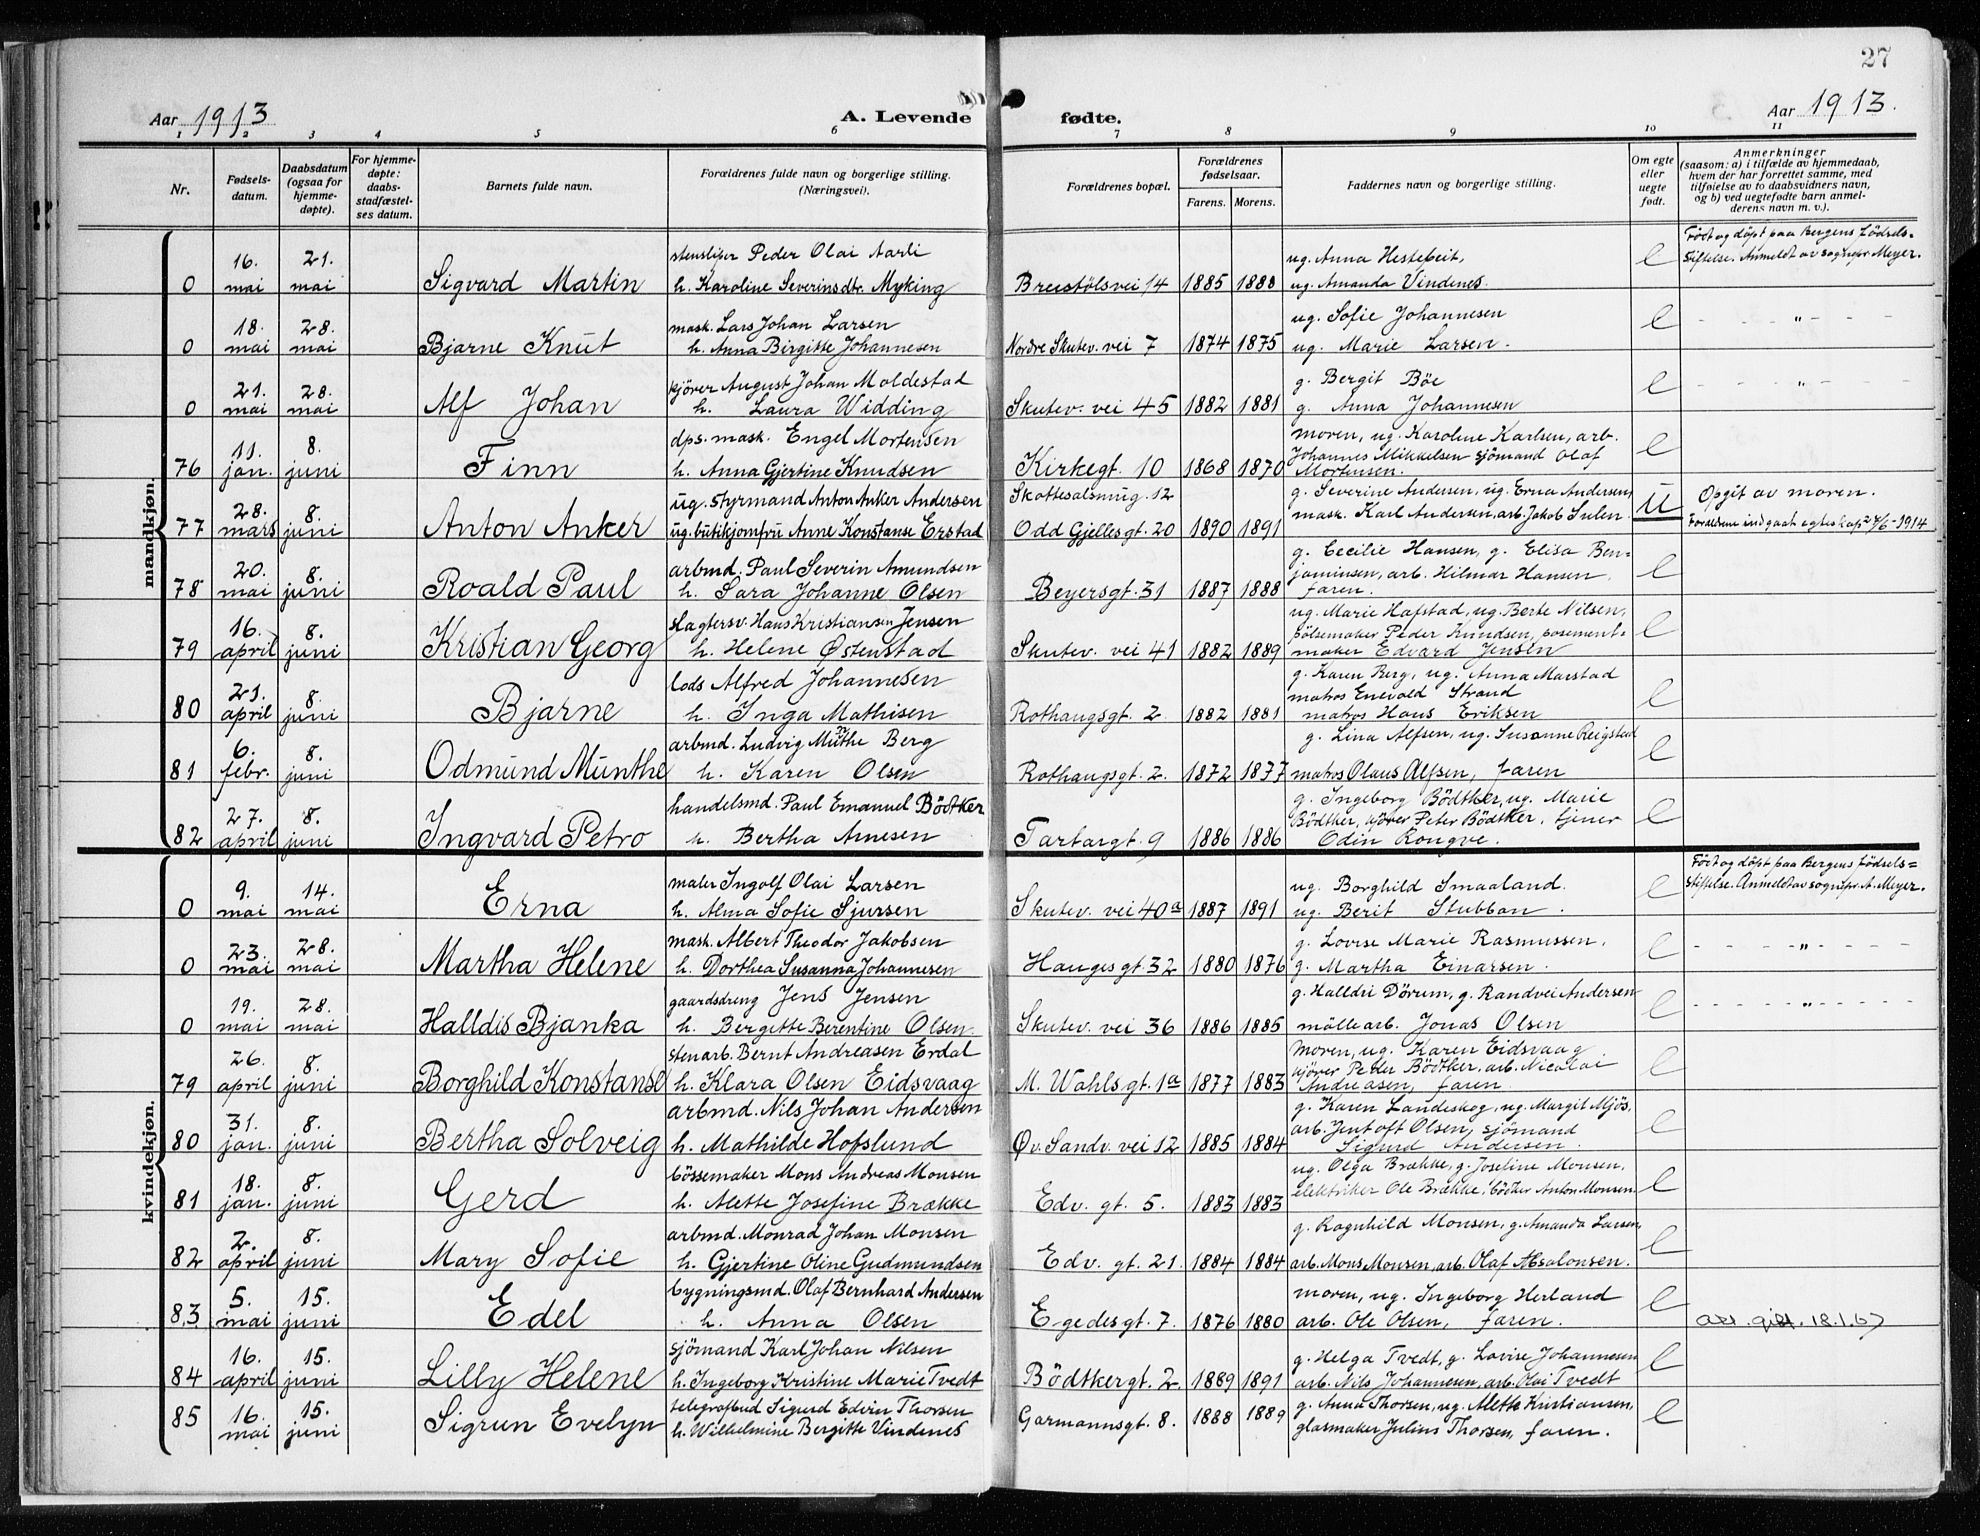 27
Aar 1913
A. Levende fødte.
Aar 1913.
1 2 3 4 5 6 7 8 9 10 11
Nr.
Fødsels-
datum.
Daabsdatum
(ogsaa for
hjemme-
døpte).
For hjemme-
døpte:
daabs-
stadfæstel-
ses datum.
Barnets fulde navn.
Forældrenes fulde navn og borgerlige stilling.
(Næringsvei).
Forældrenes bopæl.
Forældrenes
fødselsaar.
Farens. Morens.
Faddernes navn og borgerlige stilling.
Om egte
eller
uegte
født.
Anmerkninger
(saasom: a) i tilfælde av hjemmedaab,
hvem der har forrettet samme, med
tilføielse av to daabsvidners navn,
og b) ved uegtefødte barn anmel-
derens navn m. v.).
mandkjøn.
0 16. mai 21. mai Sigvard Martin
stensliper Peder Olai Aarli
h. Karoline Severinsdtr. Myking
Breistölsvei 14 1885 1888
ug. Anna Hestebeit,
ug. Amanda Vindenes.
e
Født og døpt paa Bergens fødsels-
stiftelse. Anmeldt av sognepr. Meyer.
0 18. mai 28. mai Bjarne Knut
mask. Lars Johan Larsen
h. Anna Birgitte Johannesen
Nordre Skutev. vei 7 1874 1875
ug. Sofie Johannesen
ug. Marie Larsen.
e - - - " - - -
0 21. mai 28. mai Alf Johan
kjörer August Johan Moldestad
h. Laura Widding
Skutev. vei 45 1882 1881
g. Bergit Böe
g. Anna Johannesen
e - - - " - - -
76 11. jan. 8. juni Finn
dps. mask. Engel Mortensen
h. Anna Gjertine Knudsen
Kirkegt. 10 1868 1870
moren, ug. Karoline Karlsen, arb.
Johannes Mikkelsen sjömand Olaf
Mortensen.
e
77 28. mars 8. juni Anton Anker
ug. styrmand Anton Anker Andersen
ug. butikjomfru Anne Konstanse Erstad
Skottesalsmug. 12
Odd Gjellesgt. 20 1890 1891
g. Severine Andersen, ug. Erna Andersen,
mask. Karl Andersen, arb. Jakob Sulen
u
Opgit av moren.
Forældrene indgaat egteskap 7/6-1914
78 20. mai 8. juni Roald Paul
arbmd. Paul Severin Amundsen
h. Sara Johanne Olsen
Beyersgt. 31 1887 1888
g. Cecilie Hansen, g. Elisa Ben-
jaminsen, arb. Hilmar Hansen.
faren.
e
79 16. april 8. juni Kristian Georg
slagtersv. Hans Kristiansen Jensen
h. Helene Østenstad
Skutev. vei 41 1882 1889
ug. Marie Hafstad, ug. Berte Nilsen,
pölsemaker Peder Knudsen, posement-
maker Edvard Jensen
e
80 21. april 8. juni Bjarne
lods Alfred Johannesen
h. Inga Mathisen
Rothaugsgt. 2 1882 1881
g. Karen Berg, ug. Anna Marstad
matros Enevald Strand
matros Hans Eriksen
e
81 6. febr. 8. juni Odmund Munthe
arbmd. Ludvig Munthe Berg
h. Karen Olsen
Rothaugsgt. 2. 1872 1877
g. Lina Alfsen, ug. Susanne Reigstad
matros Olaus Alfsen, faren
e
82 27. april 8. juni Ingvard Petro
handelsmd. Paul Emanuel Bödtker
h. Bertha Arnesen
Tartargt. 9 1886 1886
g. Ingeborg Bödtker, ug. Marie
Bödtker, kjörer Peter Bödtker, tjener
Odin Rongve.
e
kvindekjøn.
0 9. mai 14. mai Erna
maler Ingolf Olai Larsen
h. Alma Sofie Sjursen
Skutev. vei 40a 1887 1891
ug. Borghild Smaaland.
ug. Berit Stubban.
e
Født og døpt paa Bergens fødsels=
stiftelse. Anmeldt av sognepr. A. Meyer.
0 23. mai 28. mai Martha Helene
mask. Albert Theodor Jakobsen
h. Dorthea Susanna Johannesen
Haugesgt. 32 1880 1876
g. Lovise Marie Rasmussen.
g. Martha Einarsen.
e - - - " - - -
0 19. mai 28. mai Halldis Bjanka
gaardsdreng Jens Jensen
h. Bergitte Berentine Olsen.
Skutev. vei 36 1886 1885
g. Halldri Dörum, g. Randvei Andersen
möllearb. Jonas Olsen
e - - - " - - -
79 26. april 8. juni Borghild Konstanse
stenarb. Bernt Andreasen Erdal
h. Klara Olsen Eidsvaag
M. Wahls gt. 1a 1877 1883
moren, ug. Karen Eidsvaag
kjörer Peder Bödtker, arb. Nicolai
Andreasen, faren.
e
80 31. jan. 8. juni Bertha Solveig
arbmd. Nils Johan Andersen
h. Mathilde Hofslund
Øv. Sandv. vei 12 1885 1884
g. Karen Landeskog, ug. Margit Mjös,
arb. Jentoft Olsen, sjömand
Sigurd Andersen.
e
81 18. jan. 8. juni Gerd
bössemaker Mons Andreas Monsen
h. Alette Josefine Brække
Edv. gt. 5. 1883 1883
ug. Olga Brække, g. Joseline Monsen,
elektriker Ole Brække, bödker Anton Monsen
e
82 2. april 8. juni Mary Sofie
arbmd. Monrad Johan Monsen
h. Gjertine Oline Gudmundsen
Edv. gt. 21. 1884 1884
g. Ragnhild Monsen, g. Amanda Larsen,
arb. Mons Monsen, arb. Olaf Absalonsen.
e
83 5. mai 15. juni Edel
bygningsmd. Olaf Bernhard Andersen
h. Anna Olsen
Egedesgt. 7. 1876 1880
moren, ug. Ingeborg Herland
arb. Ole Olsen, faren.
e
att. gift. 18.1.67
84 16. april 15. juni Lilly Helene
sjömand Karl Johan Nilsen
h. Ingeborg Kristine Marie Tvedt
Bödtkergt. 2. 1889 1891
g. Helga Tvedt, g. Lovise Johannesen
arb. Nils Johannesen, arb. Olai Tvedt
e
85 16. mai 15. juni Sigrun Evelyn
telegrafbud Sigurd Edvin Thorsen
h. Wilhelmine Bergitte Vindenes
Garmannsgt. 8. 1888 1889
g. Anna Thorsen, ug. Alette Kristiansen,
glasmaker Julius Thorsen, faren.
e